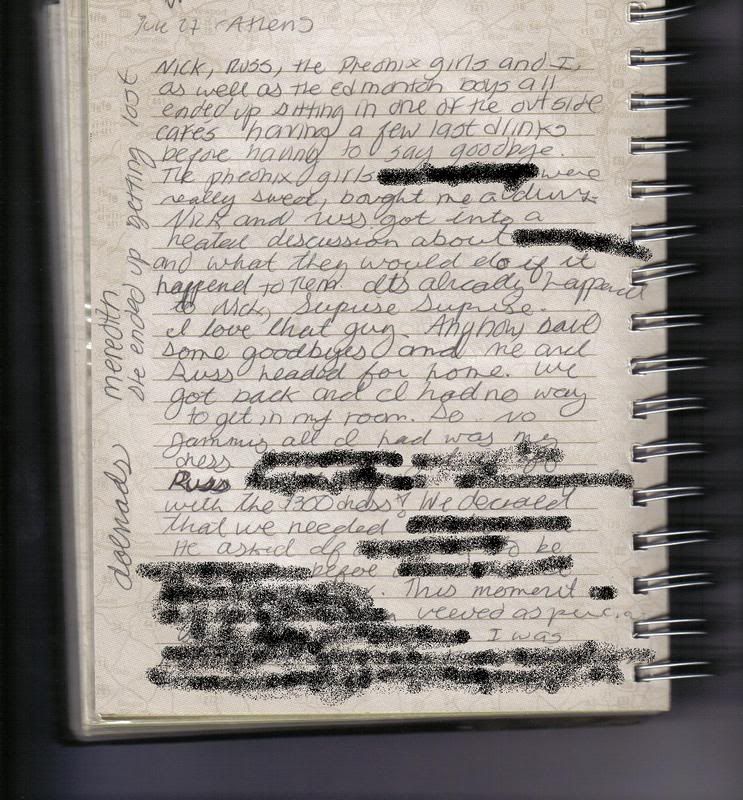 June 27 Athens
Nick, Russ, the Pheonix girls and I,
as well as the edmonton boys all
ended up sitting in one of the outside
cafes having a few last drinks
before having to say goodbye.
The pheonix girls were
really sweet, bought me a drink
Nick and russ got into a
heated discussion about
and what they would do if it
happend to them. Its already happend
to Nick, Supuse Supuse.
I love that guy. Anyhow said
some goodbyes and me and
Russ headed for home. We
got back and I had no way
to get in my room. So no
jammys all I had was my
dress
Russ
with the 1300 dress! We decided
that we needed
He asked if to be
before
This moment
veeved as
I was
meredith
she ended up getting lost
dolmads